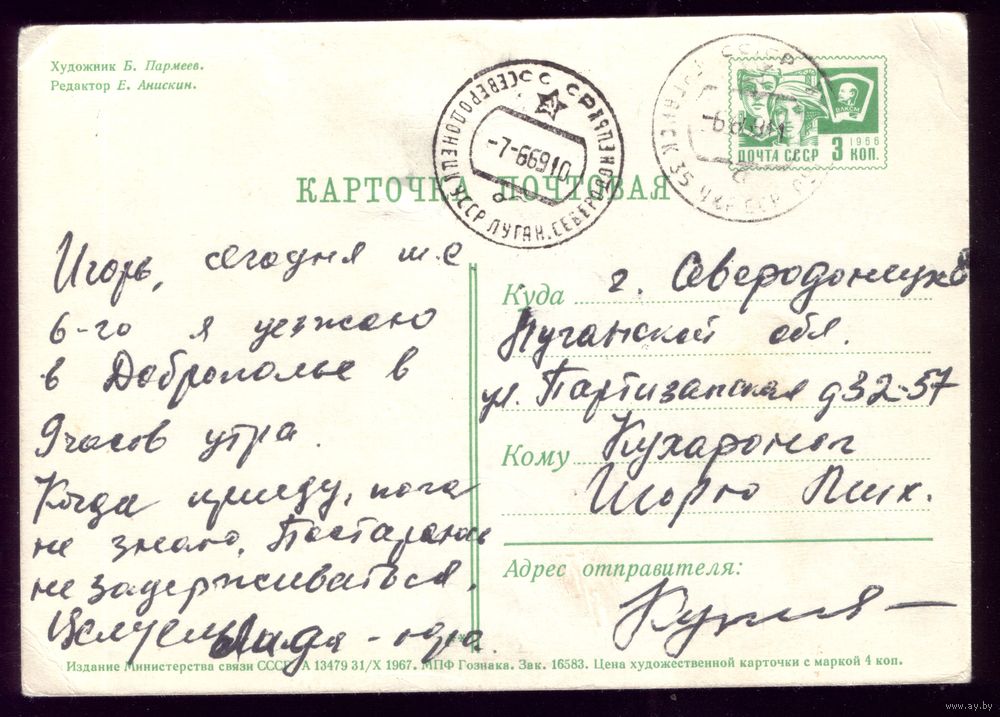 Художник Б. Пармеев.
Редактор Е. Анискин.
СССР
СЕВЕРОДОНЕЦК УССР ЛУГАН. СЕВЕРОДОНЕЦЬК
-7-66910
а
СССР
35 УКР ССР
ВЛКСМ
1966
ПОЧТА СССР 3 КОП.
КАРТОЧКА ПОЧТОВАЯ
Игорь, сегодня же
6-го я уезжаю
в Доброполье в
9 часов утра.
Когда приеду, пока
не знаю. Постараюсь
не задерживаться.
Целуем
Куда г. Северодонецк
Луганской обл.
ул. Партизанская д32-57
Кому
Игорю Мих.
Адрес отправителя:
Издание Министерства связи СССР. А 13479 31/X 1967. МПФ Гознака. Зак. 16583. Цена художественной карточки с маркой 4 коп.
www.ay.by